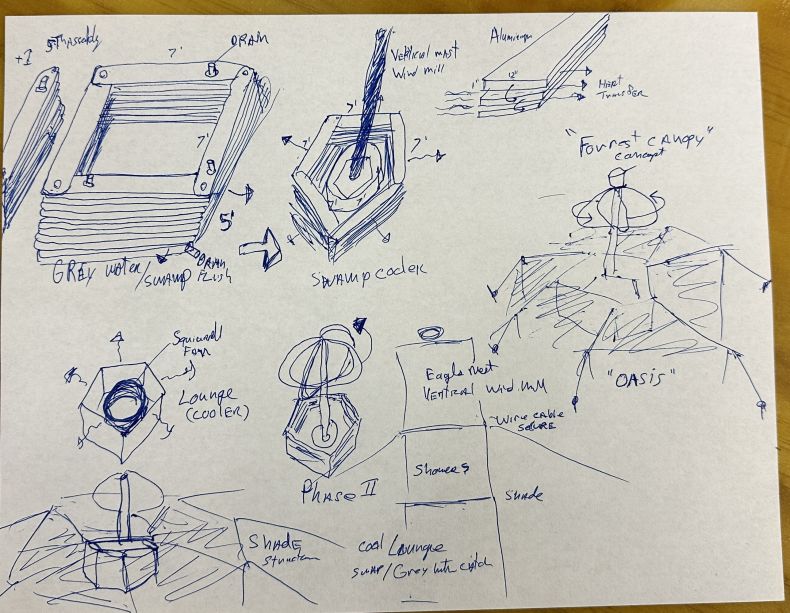 +1
5th Assembly
7'
DRAM
7'
5'
DRAM
Grey water/swamp Flush
Vertical mast
Wind mill
7'
7'
7'
Swampcooler
Aluminum
1"
12"
Heat
Transfer
"Forrest canopy"
concept
"OASIS"
Squirrel
Fan
Lounge
(COOLER)
Phase II
Eagle nest
Vertical Wind Mill
Wire cable
secure
Showers
Shade
Shade
Structure
Cool Lounge
swap/Grey